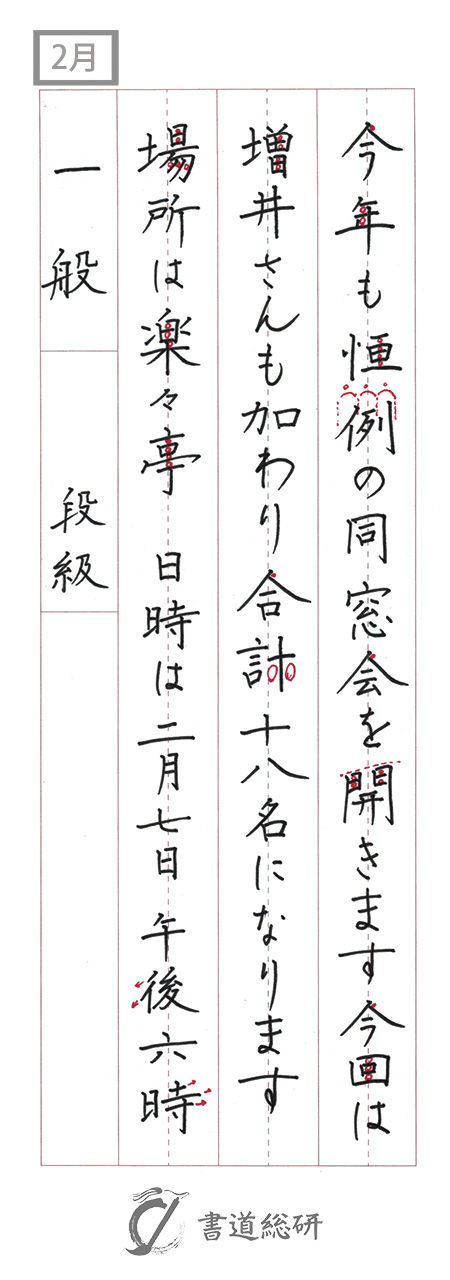 2月
今年も恒例の同窓会を開きます今回は
増井さんも加わり合計十八名になります
場所は楽々亭 日時は二月七日 午後六時
一般
段級
書道総研